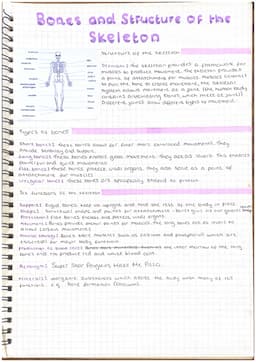 Bones and Structure of the
Skeleton
Structure of the skeleton
Skeleton: the skeleton provides a framework for
muscles to produce movement. The skeleton provides
a point of attachment for muscles. Muscles
to pull the bone to create movement. The skeletal
system allows movement at a joint. (The human body
contains bones which meet at joints)
Different joints allow different types to movement.
Types of bones
Short bones: these bones allow for finer more controlled movements. They
provide stability and support.
Long bones: these bones enable gross movement. They
Flat bones: these bones protect vital organs, they also serve as a point of
attachment for muscles
Irregular bones: these bones are specifically shaped to protect
Six functions of the skeleton
Support: Rigid bones keep us upright and hold the rest of the body in place
Shape: structural shape and points for attachment - bones give us our general shape
Protection: Flat bones enclose and protect vital organs
Movement: bones provide anchor points for muscles. The long bones act as levers to
allow certain movements
Mineral storage: Bones store minerals such as calcium and phosphorus which are
essential for major body functions
Production of blood cells: the inner marrow of the long
bones and rib produce red and white blood cells
Acronym: Super Star Penguins Make Me Pizza
Mineral(s): inorganic substances which assist the body with many of its
functions e.g. bone formation (calcium).